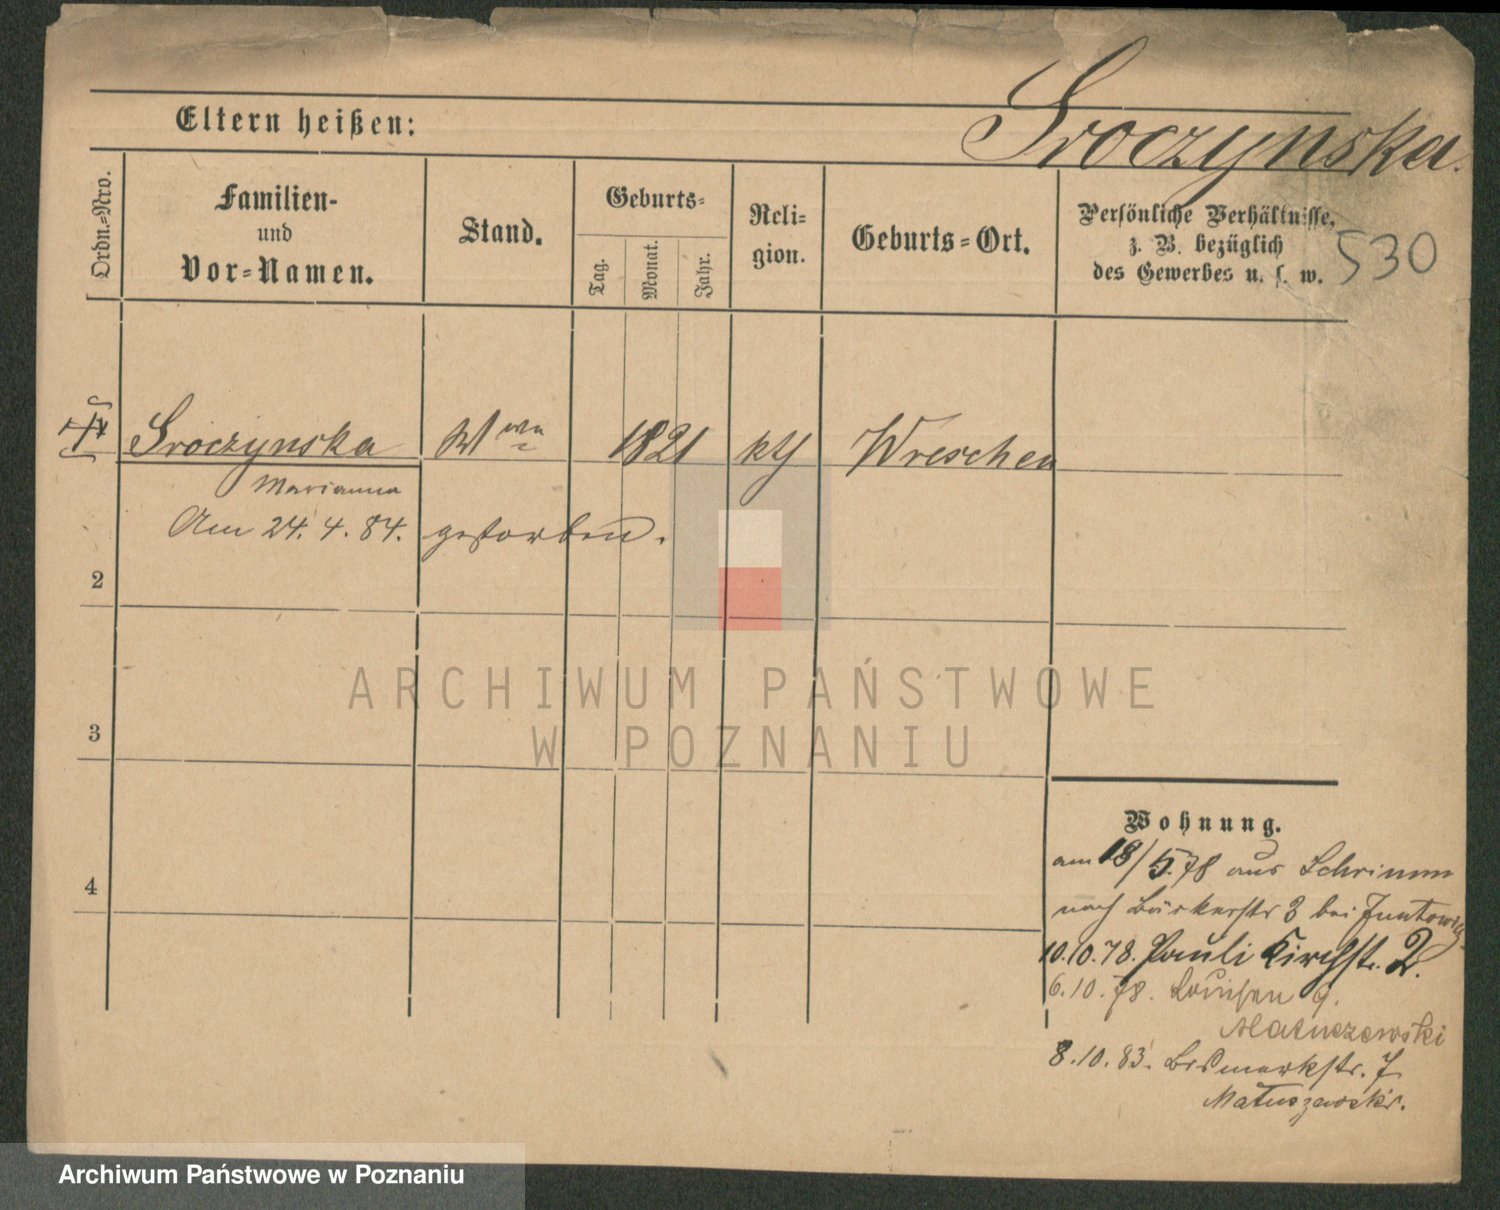 Sroczynska.
Eltern heißen:
530
Ordn.=Nro.
Familien-
und
Vor=Namen.
Stand.
Geburts=
Tag.
Monat.
Jahr.
Reli=
gion.
Geburts=Ort.
Persönliche Verhältnisse,
z. B. bezüglich
des Gewerbes u. s. w.
Sroczynska Wwe 1821 kth Wreschen
Marianna
Am 24. 4. 84. gestorben.
2
3
4
ARCHIWUM PAŃSTWOWE
W POZNANIU
Wohnung.
am 18/5.78 aus Schrimm
nach Bäckerstr 3 bei
10.10.78. Pauli Kirchstr. 2.
6.10.78. Louisen 9.
Matuszewski
8.10.83. Bismarkstr. 7
Matuszewski.
Archiwum Państwowe w Poznaniu